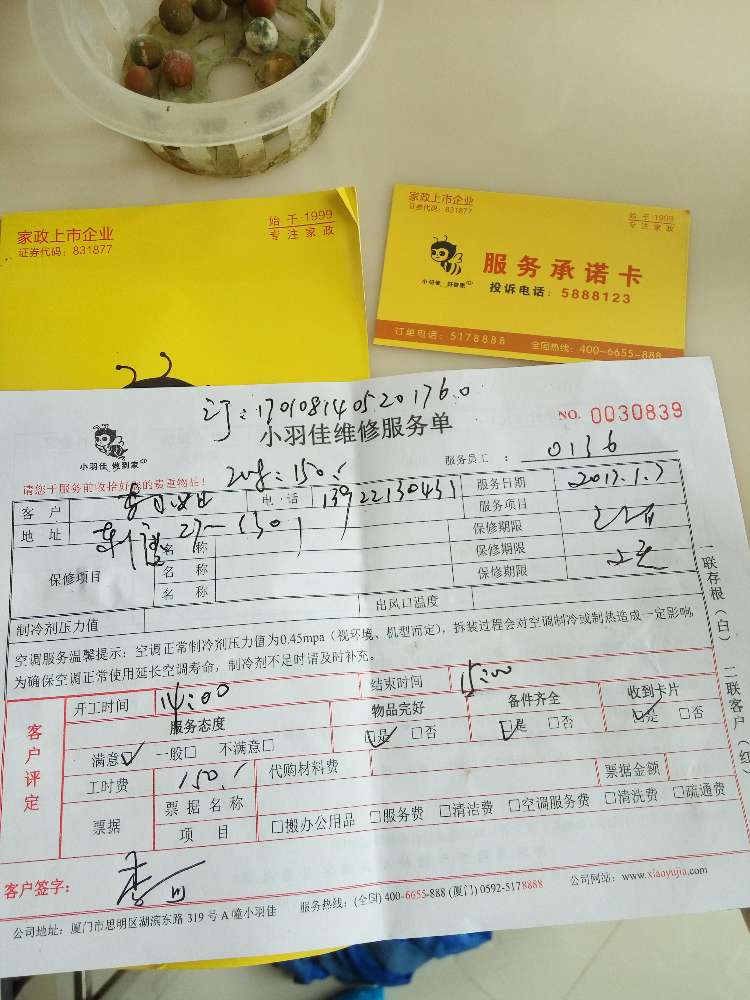 家政上市企业
证券代码：831877
始于1999
专注家政
家政上市企业
证券代码：831877
始于1999
专注家政
小羽佳
服务承诺卡
投诉电话：5888123
订单电话：5178888 全国热线：400-6655-888
订：17010814052017600
小羽佳维修服务单
NO. 0030839
小羽佳 做到家
服务员工： 0136
请您于服务前收拾好您的贵重物品！
客户 电·话 13922130431 服务日期 2017.1.7
地址 27-1301 服务项目
保修项目 名称 保修期限
名称 保修期限
名称 保修期限
制冷剂压力值 出风口温度
空调服务温馨提示：空调正常制冷剂压力值为0.45mpa（视环境、机型而定），拆装过程会对空调制冷或制热造成一定影响
为确保空调正常使用延长空调寿命，制冷剂不足时请及时补充。
一联存根（白） 二联客户（红）
客户评定
开工时间 14:00 结束时间 15:00
服务态度 物品完好 备件齐全 收到卡片
满意☑ 一般□ 不满意□ ☑是 □否 ☑是 □否 ☑是 □否
工时费 150 代购材料费
票据 票据名称 票据金额
项目 □搬办公用品 □服务费 □清洁费 □空调服务费 □清洗费 □疏通费
客户签字：
公司地址：厦门市思明区湖滨东路 319 号 A 幢小羽佳 服务热线：(全国) 400-6655-888 (厦门) 0592-5178888 公司网站：www.xiaoyujia.com